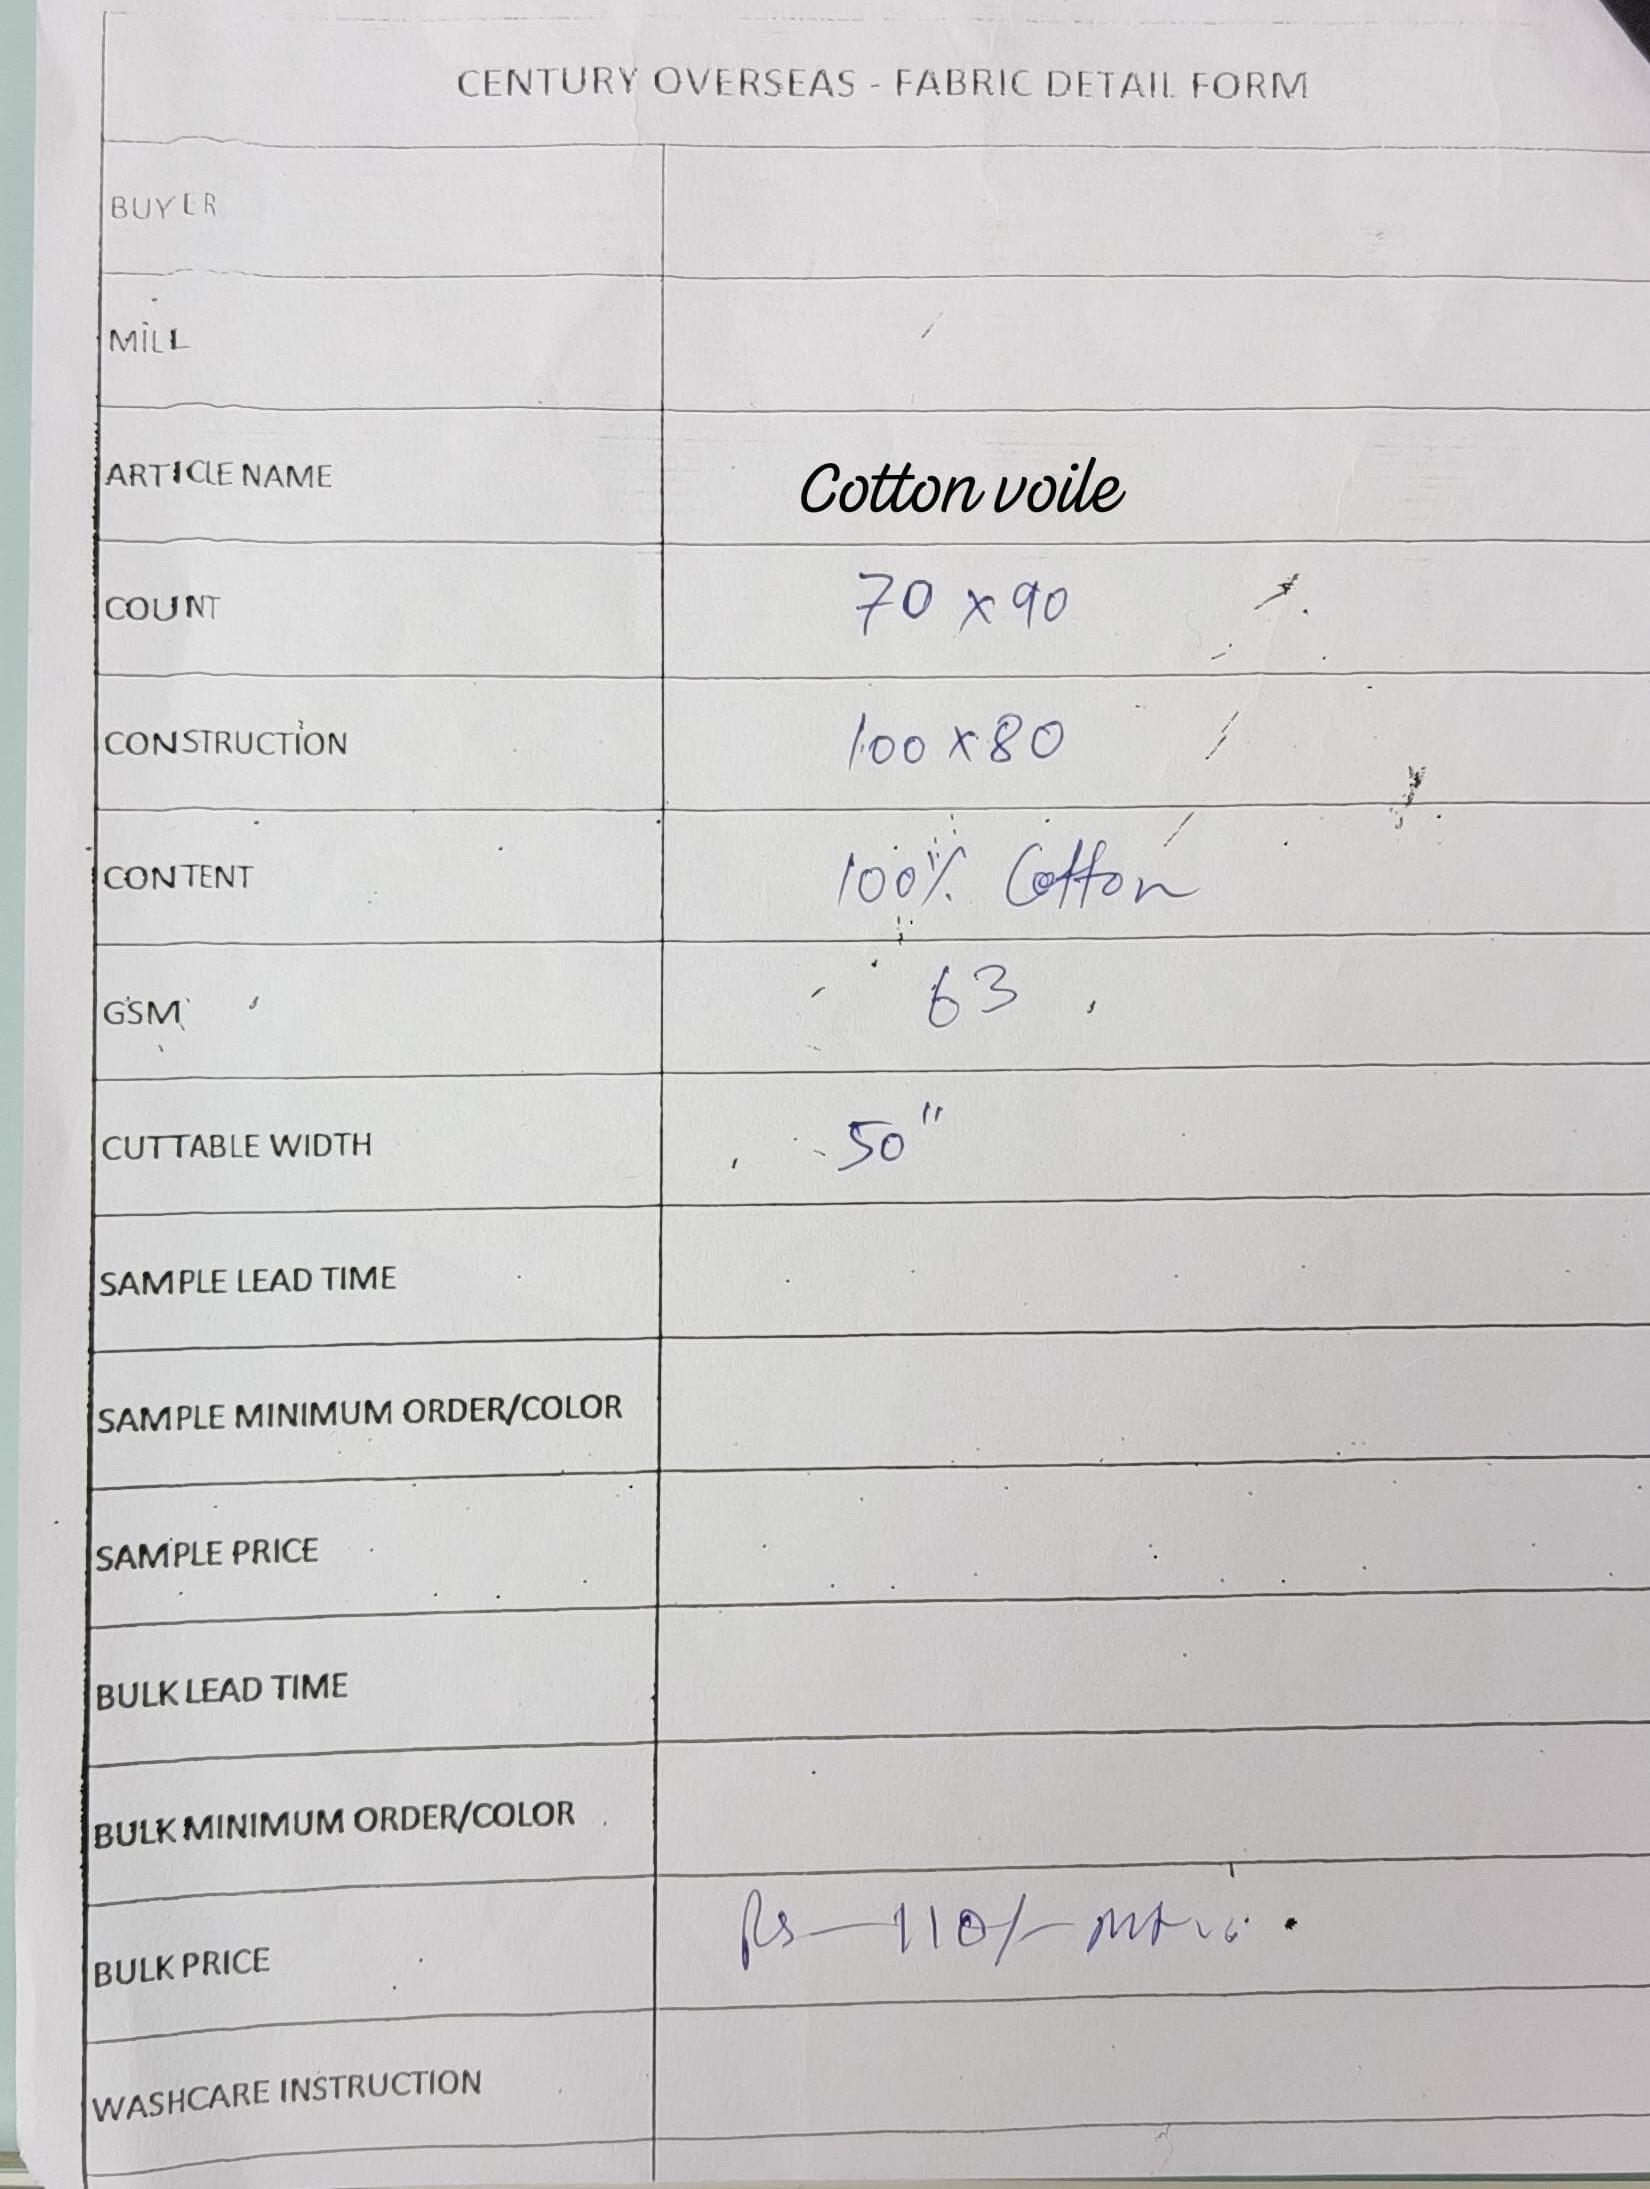 CENTURY OVERSEAS - FABRIC DETAIL FORM
BUYER
MILL
ARTICLE NAME Cotton voile
COUNT 70 x 90
CONSTRUCTION 100 x 80
CONTENT 100% Cotton
GSM 63
CUTTABLE WIDTH 50"
SAMPLE LEAD TIME
SAMPLE MINIMUM ORDER/COLOR
SAMPLE PRICE
BULK LEAD TIME
BULK MINIMUM ORDER/COLOR
BULK PRICE Rs - 110/-
WASHCARE INSTRUCTION